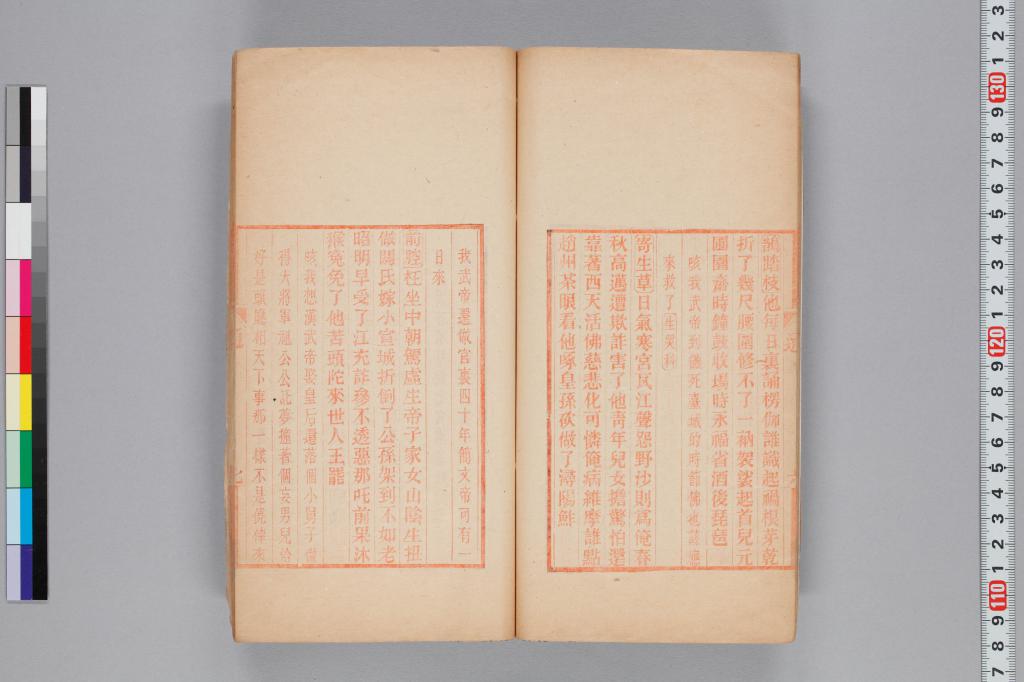 鵲踏枝他每日裏誦楞伽誰識起禍根芽乾
折了幾尺腰圍修不了一衲袈裟起首兒元
圃園齋時鐘鼓收場時永福省酒後琵琶
咳我武帝到餓死臺城的時節佛也該應
來救了生哭科
寄生草日氣寒宮瓦江聲怨野沙則爲俺春
秋高邁遭欺詐害了他靑年兒女擔驚怕還
靠著西天活佛慈悲化可憐俺病維摩誰點
趙州茶眼看他啄皇孫砍做了潯陽鮓
我武帝還做官裏四十年簡文帝可有一
日來
前腔枉坐中朝駕虛生帝子家女山陰生扭
做閼氏嫁小宣城折倒了公孫架到不如老
昭明早受了江充詐參不透惡那吒前果沐
猴冤免了他苦頭陀來世人王罷
咳我想漢武帝娶皇后還落個小舅子當
得大將軍祖公公託夢擡着個哀男兒
好是頭腦和天下事都一樣不是僥倖來